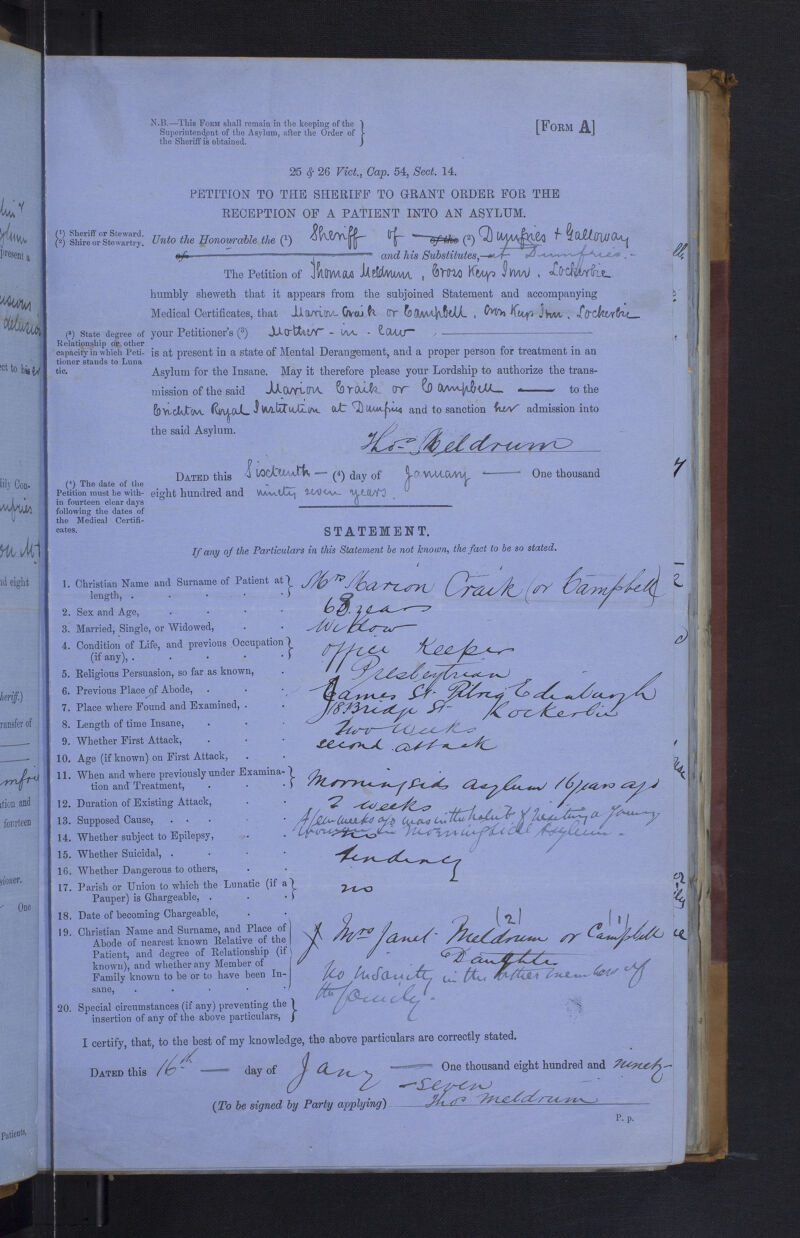 N.B.—This Form shall remain in the keeping of the
Superintendent of the Asylum, after the Order of
the Sheriff is obtained.
[Form A]
25 & 26 Vict., Cap. 54, Sect. 14.
PETITION TO THE SHERIFF TO GRANT ORDER FOR THE
RECEPTION OF A PATIENT INTO AN ASYLUM.
(¹) Sheriff or Steward.
(²) Shire or Stewartry.
Unto the Honourable the (¹) Sheriff of of the (²) Dumfries & Galloway
and his Substitutes, at Dumfries.
The Petition of Thomas Meldrum, Cross Keys Inn, Lockerbie
humbly sheweth that it appears from the subjoined Statement and accompanying
Medical Certificates, that Marion Craik or Campbell, Cross Keys Inn, Lockerbie
(³) State degree of
Relationship or other
capacity in which Peti-
tioner stands to Luna
tic.
your Petitioner's (³) Mother-in-law
is at present in a state of Mental Derangement, and a proper person for treatment in an
Asylum for the Insane. May it therefore please your Lordship to authorize the trans-
mission of the said Marion Craik or Campbell to the
Crichton Royal Institution at Dumfries and to sanction her admission into
the said Asylum.
Thos Meldrum
(⁴) The date of the
Petition must be with-
in fourteen clear days
following the dates of
the Medical Certifi-
cates.
Dated this Sixteenth (⁴) day of January One thousand
eight hundred and ninety seven years.
STATEMENT.
If any of the Particulars in this Statement be not known, the fact to be so stated.
1. Christian Name and Surname of Patient at
length, . Mrs Marion Craik (or Campbell)
2. Sex and Age, 63 years
3. Married, Single, or Widowed, Widow
4. Condition of Life, and previous Occupation
(if any), . Office Keeper
5. Religious Persuasion, so far as known, Presbyterian
6. Previous Place of Abode, James St. Pilrig Edinburgh
7. Place where Found and Examined, 18 Bridge St Lockerbie
8. Length of time Insane, Two weeks
9. Whether First Attack, second attack
10. Age (if known) on First Attack,
11. When and where previously under Examina-
tion and Treatment, Morningside asylum 16 years ago
12. Duration of Existing Attack, 2 weeks
13. Supposed Cause, A few weeks ago was in the habit of visiting a young
woman in Morningside Asylum.
14. Whether subject to Epilepsy, no
15. Whether Suicidal, tendency
16. Whether Dangerous to others,
17. Parish or Union to which the Lunatic (if a
Pauper) is Chargeable, no
18. Date of becoming Chargeable,
19. Christian Name and Surname, and Place of
Abode of nearest known Relative of the
Patient, and degree of Relationship (if
known), and whether any Member of
Family known to be or to have been In-
sane,
(2) (1)
Mrs Janet Meldrum or Campbell
Daughter
No insanity in the other members of
the family.
20. Special circumstances (if any) preventing the
insertion of any of the above particulars,
I certify, that, to the best of my knowledge, the above particulars are correctly stated.
Dated this 16th day of Jany One thousand eight hundred and ninety-
seven
(To be signed by Party applying) Thos Meldrum
P. p.